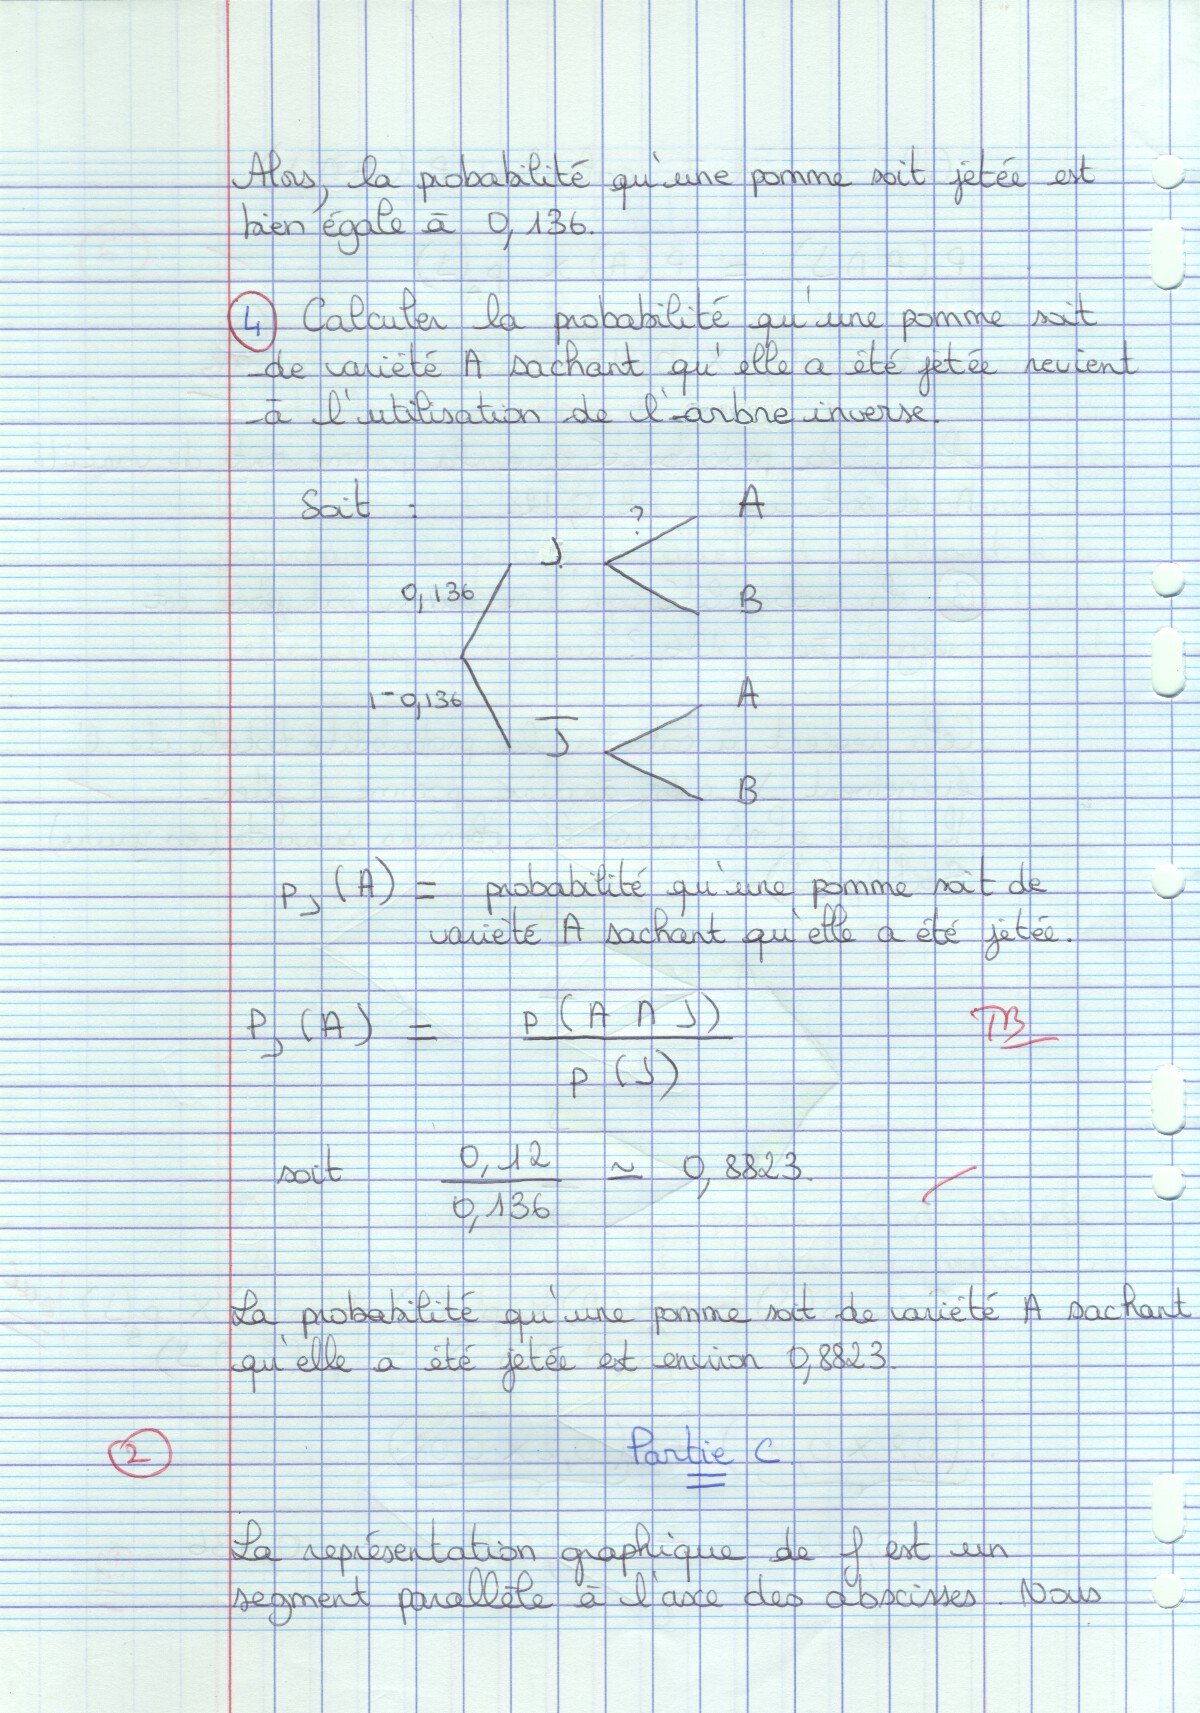 Alors, la probabilité qu'une pomme soit jetée est
bien égale à 0,136.
4 Calculer la probabilité qu'une pomme soit
de variété A sachant qu'elle a été jetée revient
à l'utilisation de l'arbre inverse.
Soit :
? A
J
0,136 B
1-0,136 A
J̅
B
PJ (A) = probabilité qu'une pomme soit de
variété A sachant qu'elle a été jetée.
PJ (A) = p (A ∩ J) TB
p (J)
soit 0,12 ≃ 0,8823.
0,136
La probabilité qu'une pomme soit de variété A sachant
qu'elle a été jetée est environ 0,8823.
2 Partie C
La représentation graphique de f est un
segment parallèle à l'axe des abscisses. Nous